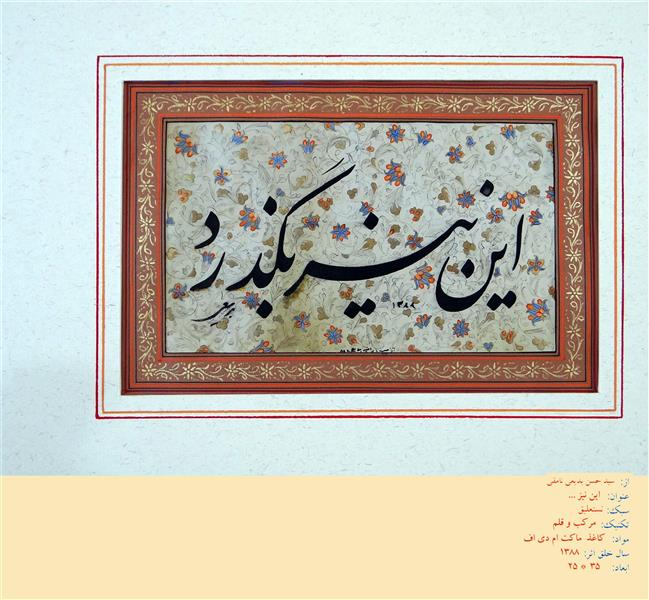 این نیز بگذرد
۱۳۸۸
از: سید حسن بدیعی نامقی
عنوان: این نیز ...
سبک: نستعلیق
تکنیک: مرکب و قلم
مواد: کاغذ ماکت ام دی اف
سال خلق اثر: ۱۳۸۸
ابعاد: ۳۵ * ۲۵